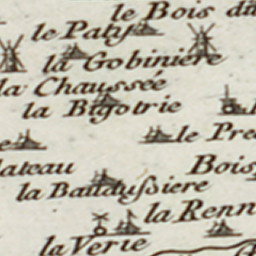 le Bois du
le Paty
la Gobiniere
la Chaussée
la Bigotrie
le Pre
lateau
Bois
la Bauduſsiere
la Renn
la Verie